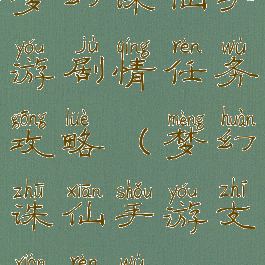 yóu jù qíng rèn wù
游剧情任务
gōng lüè mèng huàn
攻略（梦幻
zhū xiān shǒu yóu zhī
诛仙手游支